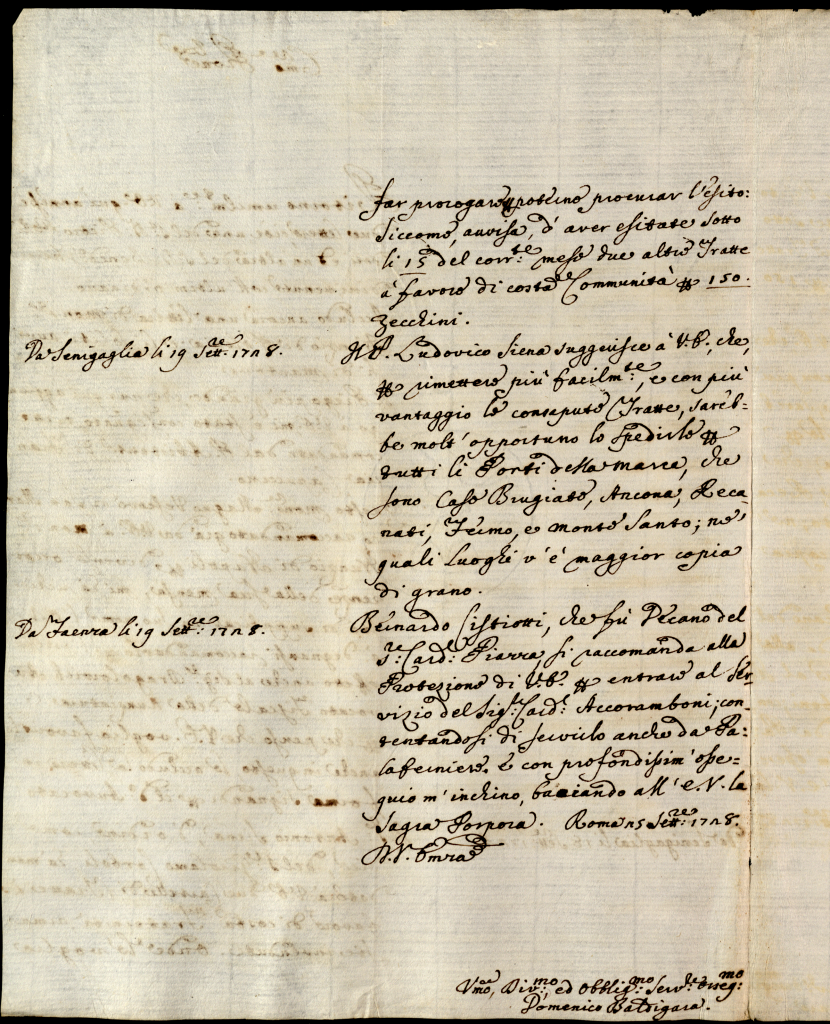 far prorogare, poterne procurar l'esito:
Siccome, avvisa, d'aver esitate sotto
li 15 del corr:te mese due altre Tratte
à favore di costa Communità 150.
Zecchini.
Da Senigaglia li 19 Sett:re 1728.
Il P. Ludovico Siena suggerisce à V.E., che,
rimettere più facilm:te, e con più
vantaggio le consapute Tratte, sareb-
be molt'opportuno lo spedirle
tutti li Porti della Marca, che
sono Case Brugiate, Ancona, Reca-
nati, Fermo, e Monte Santo; ne'
quali Luoghi v'è maggior copia
di grano.
Da Faenza li 19 Sett:re 1728.
Bernardo Cistiotti, che fù Decano del
S:r Card: Piazza, si raccomanda alla
Protezione di V.E. entrare al Ser-
vizio del Sig:r Card: Accoramboni; con-
tentandosi di servirlo anche da Pa-
lafreniere. e con profondissim'osse-
quio m'inchino, baciando all'E.V. la
Sagra Porpora. Roma 25 Sett:re 1728.
D.V. Emza
Vmo, Div:mo, ed Obblig:mo Serv:re Osseq:mo
Domenico Baldigara.